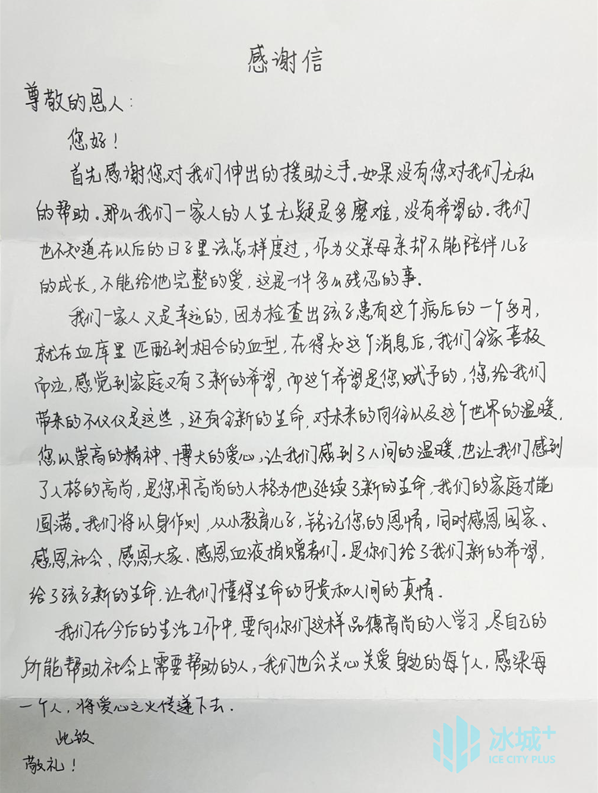 感谢信
尊敬的恩人：
您好！
首先感谢您对我们伸出的援助之手。如果没有您对我们无私
的帮助。那么我们一家人的人生无疑是多磨难，没有希望的。我们
也不知道在以后的日子里该怎样度过，作为父亲母亲却不能陪伴儿子
的成长，不能给他完整的爱，这是一件多么残忍的事。
我们一家人又是幸运的，因为检查出孩子患有这个病后的一个多月，
就在血库里匹配到相合的血型，在得知这个消息后，我们全家喜极
而泣，感觉到家庭又有了新的希望，而这个希望是您赋予的，您给我们
带来的不仅仅是这些，还有全新的生命，对未来的向往以及这个世界的温暖。
您以崇高的精神、博大的爱心，让我们感到了人间的温暖，也让我们感到
了人格的高尚，是您用高尚的人格为他延续了新的生命，我们的家庭才能
圆满。我们将以身作则，从小教育儿子，铭记您的恩情，同时感恩国家、
感恩社会、感恩大家、感恩血液捐赠者们。是你们给了我们新的希望，
给了孩子新的生命，让我们懂得生命的可贵和人间的真情。
我们在今后的生活工作中，要向你们这样品德高尚的人学习，尽自己的
所能帮助社会上需要帮助的人，我们也会关心关爱身边的每个人，感染每
一个人，将爱心之火传递下去。
此致
敬礼！
冰城+
ICE CITY PLUS